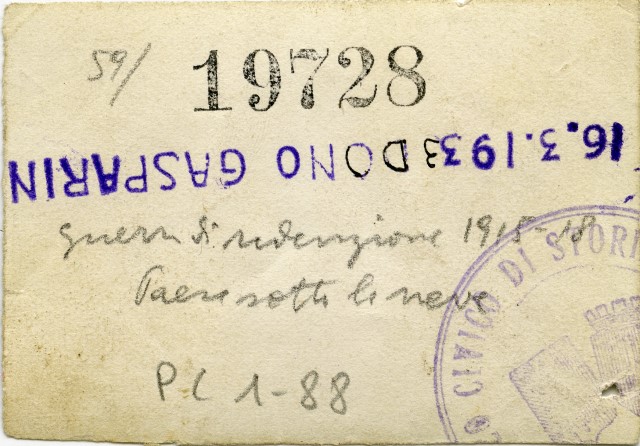 59/
19728
16.3.1933 DONO GASPARIN
guerra di redenzione 1915-18
Paese sotto la neve
PC 1-88
CIVICO DI STORI